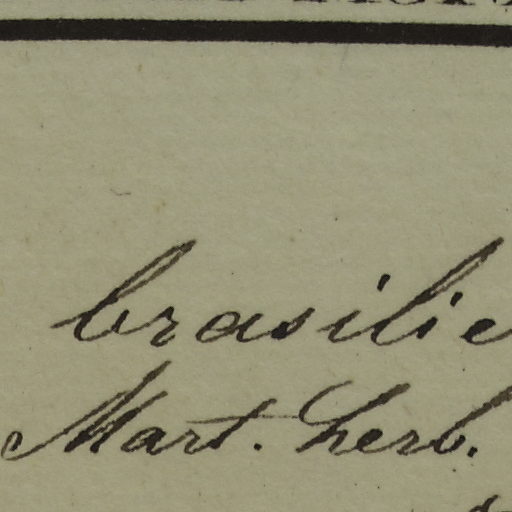 brasilie
Mart. herb.